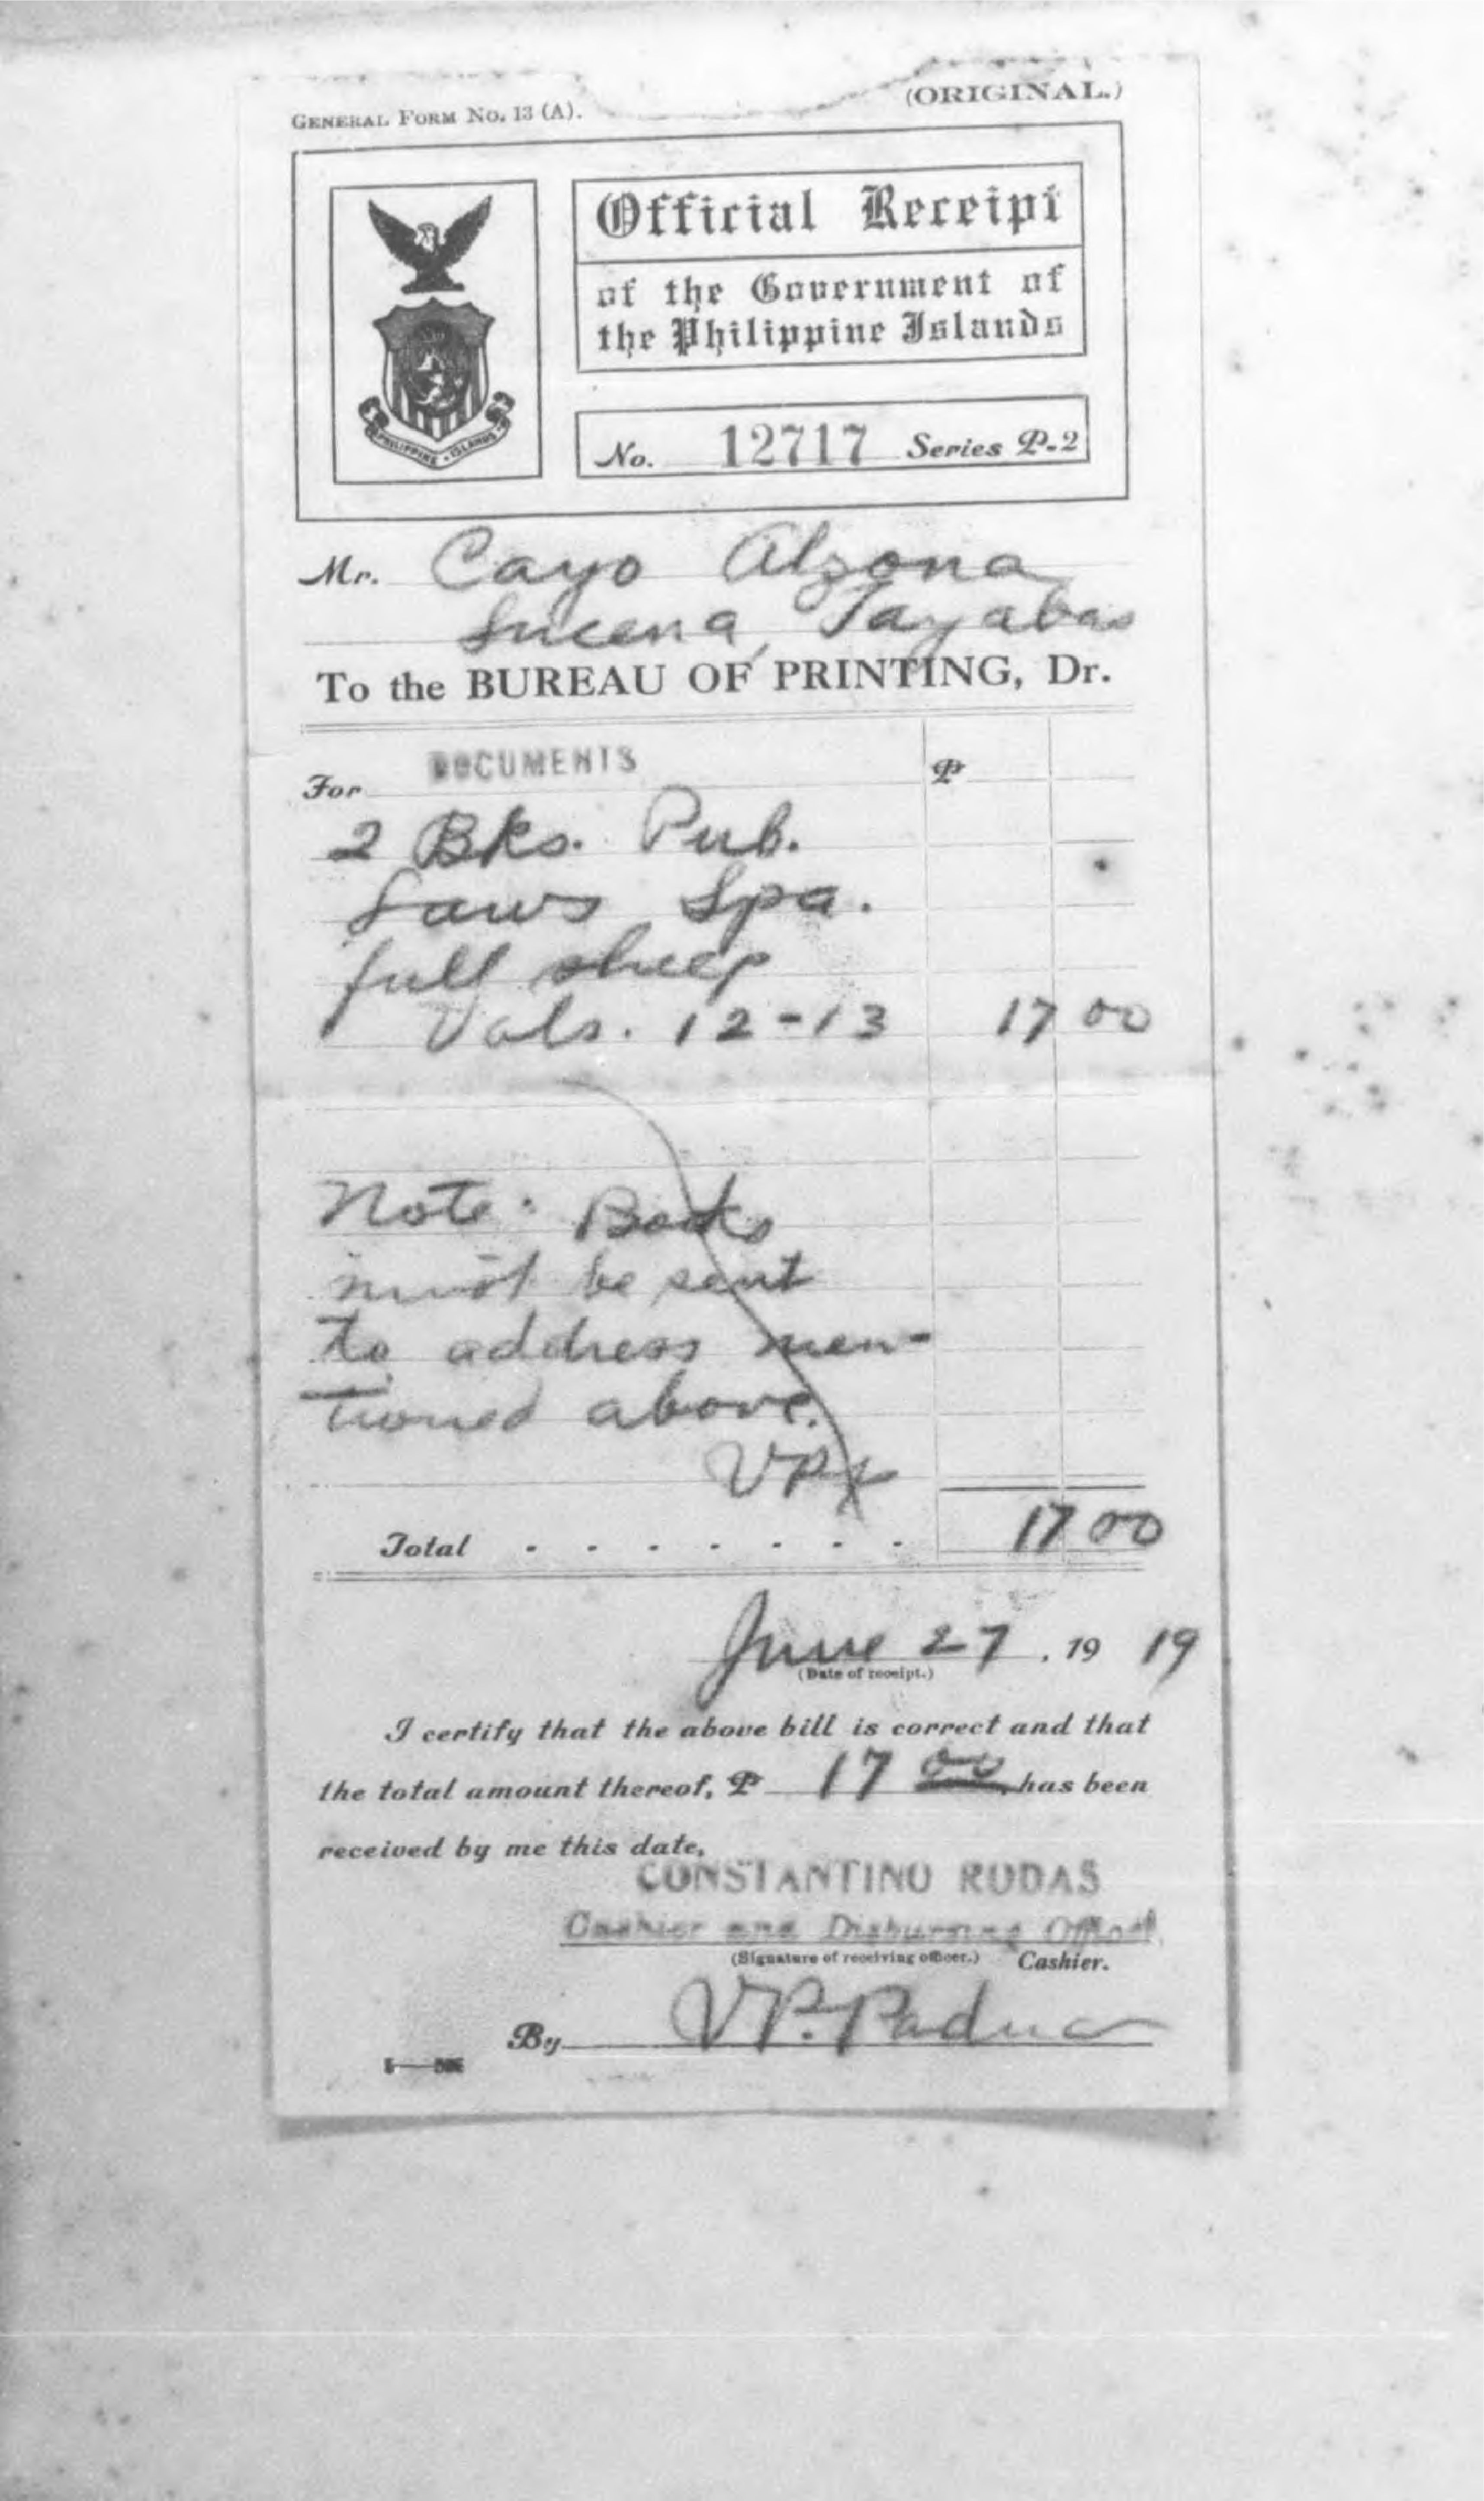 GENERAL FORM No. 13 (A).
(ORIGINAL.)
Official Receipt
of the Government of
the Philippine Islands
PHILIPPINE ISLANDS
No. 12717 Series P-2
Mr. Cayo Alzona
Lucena, Tayabas
To the BUREAU OF PRINTING, Dr.
For DOCUMENTS ₱
2 Bks. Pub.
Laws Spa.
full sheep
Vols. 12-13 17 00
Note: Books
must be sent
to address men-
tioned above.
VP
Total . . . . . . . 17 00
June 27, 19 19
(Date of receipt.)
I certify that the above bill is correct and that
the total amount thereof, ₱ 17 00 has been
received by me this date,
CONSTANTINO RODAS
Cashier and Disbursing Officer
(Signature of receiving officer.) Cashier.
By V.P. Padua